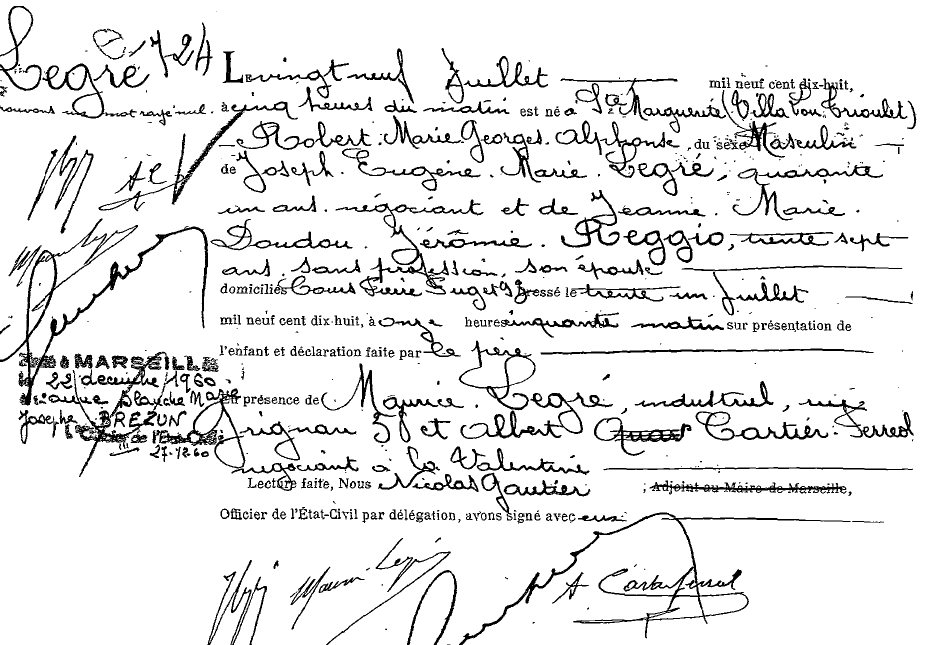 Legré 724
approuvons un mot rayé nul.
Le vingt neuf Juillet mil neuf cent dix-huit,
à cinq heures du matin est né à Ste Marguerite (Villa Lou Trioulet)
Robert. Marie. Georges. Alphonse, du sexe Masculin
de Joseph. Eugène. Marie. Legré, quarante
un ans. négociant et de Jeanne. Marie.
Doudou. Jérômie. Reggio, trente sept
ans. sans profession, son épouse
domiciliés Cours Pierre Puget 98 Dressé le trente un Juillet
mil neuf cent dix-huit, à onze heures cinquante matin sur présentation de
l'enfant et déclaration faite par le père
En présence de Maurice. Legré, industriel, rue
Grignan 38 et Albert Cartier. Ferreol
négociant à la Valentine
Lecture faite, Nous Nicolas Gautier ; Adjoint au Maire de Marseille,
Officier de l'État-Civil par délégation, avons signé avec eux
à MARSEILLE
le 22 décembre 1960
Blanche Marie
Josephe BREZUN
L'Officier de l'Etat-Civil
27-12-60
Maurice Legré
A Cartier ferreol